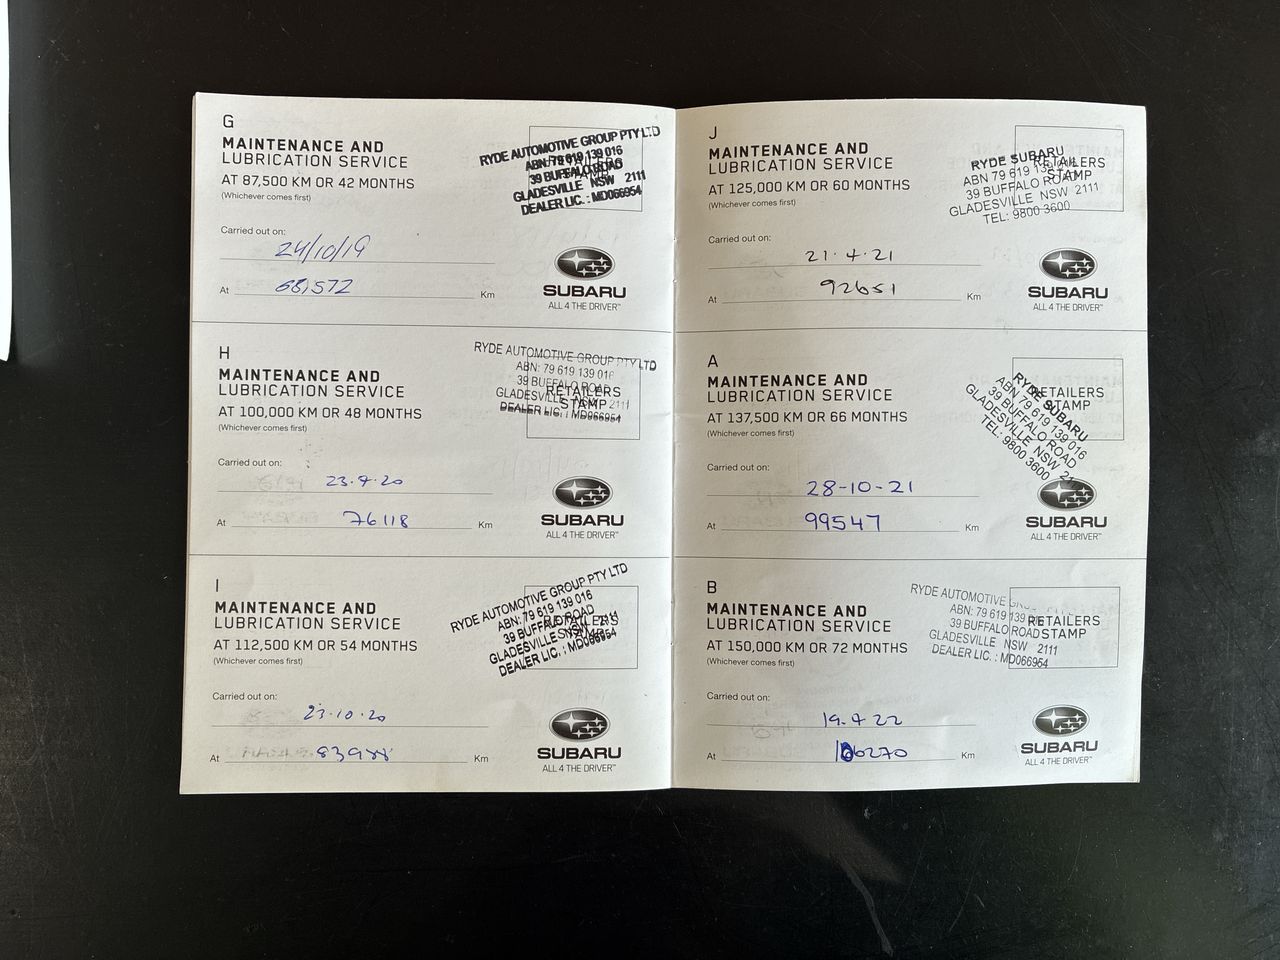 G
MAINTENANCE AND
LUBRICATION SERVICE
AT 87,500 KM OR 42 MONTHS
(Whichever comes first)
RYDE AUTOMOTIVE GROUP PTY LTD
ABN: 79 619 139 016
39 BUFFALO ROAD
GLADESVILLE NSW 2111
DEALER LIC. : MD066954
Carried out on:
24/10/19
At 68,572 Km
SUBARU
ALL 4 THE DRIVER™
H
MAINTENANCE AND
LUBRICATION SERVICE
AT 100,000 KM OR 48 MONTHS
(Whichever comes first)
RYDE AUTOMOTIVE GROUP PTY LTD
ABN: 79 619 139 016
39 BUFFALO ROAD
GLADESVILLE NSW 2111
DEALER LIC. : MD066954
RETAILERS
STAMP
Carried out on:
23.4.20
At 76118 Km
SUBARU
ALL 4 THE DRIVER™
I
MAINTENANCE AND
LUBRICATION SERVICE
AT 112,500 KM OR 54 MONTHS
(Whichever comes first)
RYDE AUTOMOTIVE GROUP PTY LTD
ABN: 79 619 139 016
39 BUFFALO ROAD
GLADESVILLE NSW 2111
DEALER LIC. : MD066954
RETAILERS
STAMP
Carried out on:
23.10.20
At 83988 Km
SUBARU
ALL 4 THE DRIVER™
J
MAINTENANCE AND
LUBRICATION SERVICE
AT 125,000 KM OR 60 MONTHS
(Whichever comes first)
RYDE SUBARU
ABN 79 619 139 016
39 BUFFALO ROAD
GLADESVILLE NSW 2111
TEL: 9800 3600
RETAILERS
STAMP
Carried out on:
21.4.21
At 92651 Km
SUBARU
ALL 4 THE DRIVER™
A
MAINTENANCE AND
LUBRICATION SERVICE
AT 137,500 KM OR 66 MONTHS
(Whichever comes first)
RYDE SUBARU
ABN 79 619 139 016
39 BUFFALO ROAD
GLADESVILLE NSW 21
TEL: 9800 3600
RETAILERS
STAMP
Carried out on:
28-10-21
At 99547 Km
SUBARU
ALL 4 THE DRIVER™
B
MAINTENANCE AND
LUBRICATION SERVICE
AT 150,000 KM OR 72 MONTHS
(Whichever comes first)
RYDE AUTOMOTIVE
ABN: 79 619 139
39 BUFFALO ROAD
GLADESVILLE NSW 2111
DEALER LIC. : MD066954
RETAILERS
STAMP
Carried out on:
19.4.22
At 106270 Km
SUBARU
ALL 4 THE DRIVER™